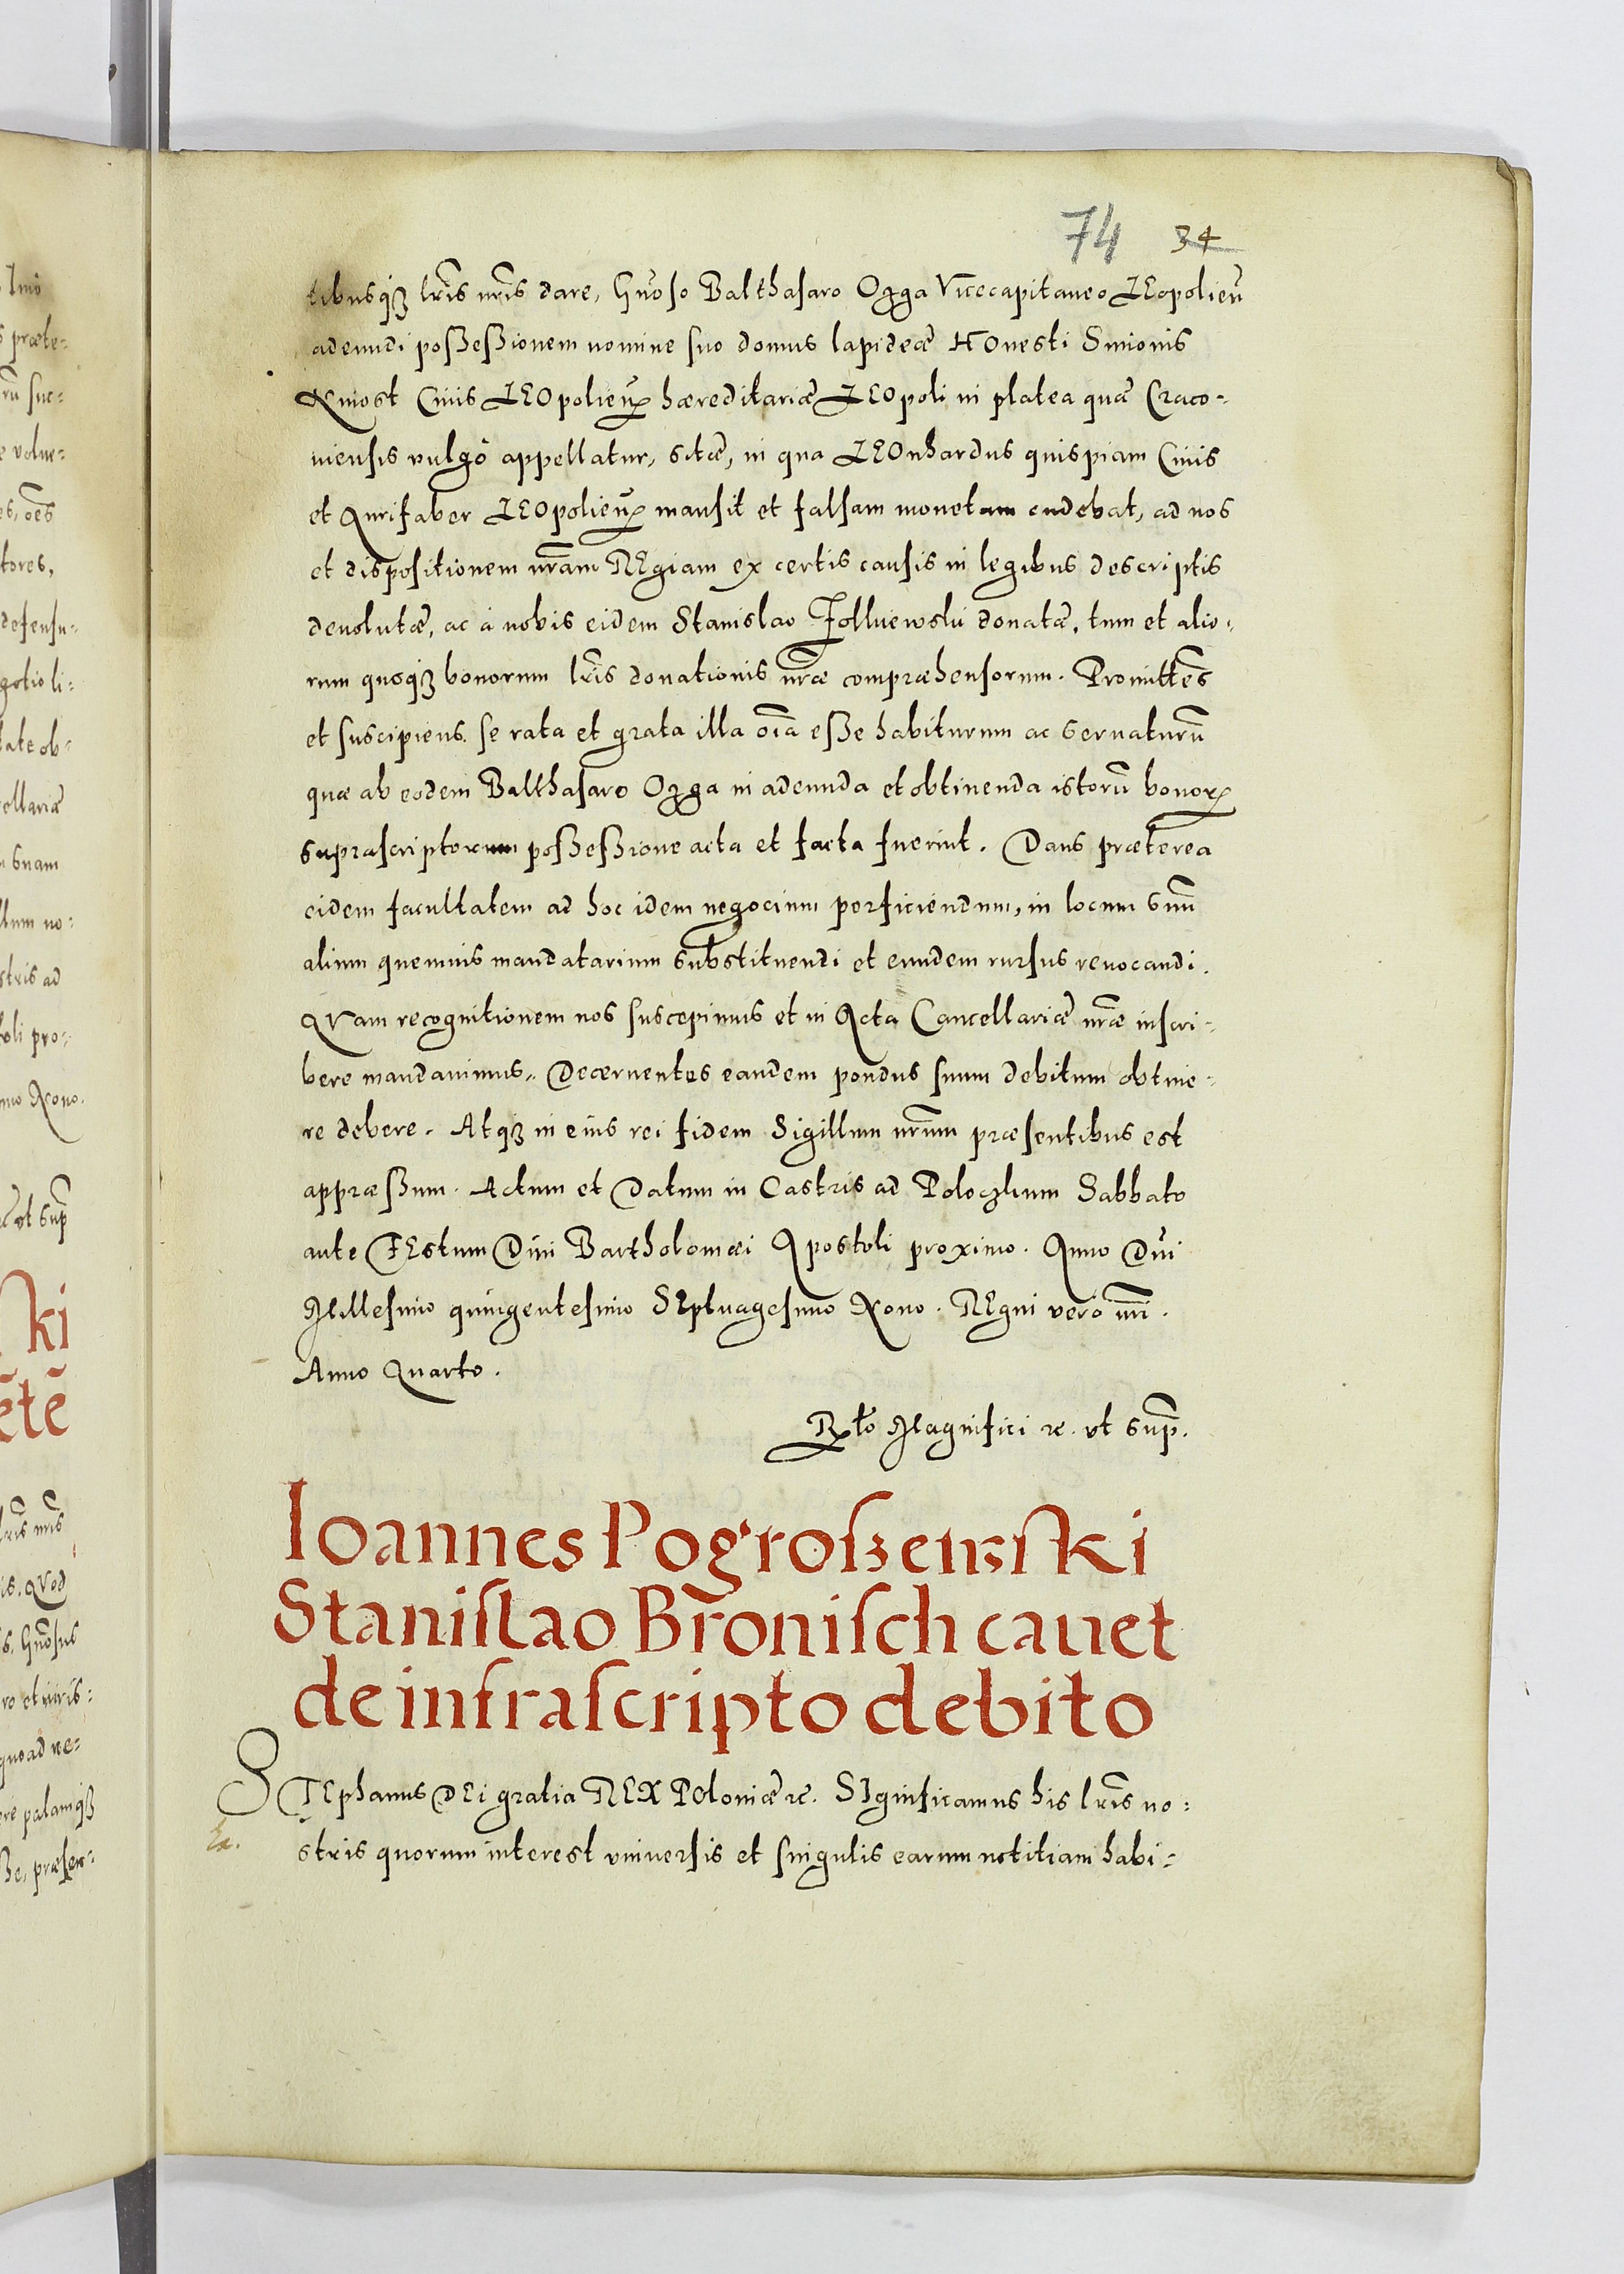 74 34
tibusqȝ lr̃is nr̃is dare, Gñoso Balthasaro Ozga Vicecapitaneo LEopolień
adeundi possessionem nomine suo domus lapideæ HOnesti Simonis
Ciuis LEOpolień hæreditariæ LEOpoli in platea quæ Craco-
uiensis vulgo appellatur, sitæ, in qua LEOnhardus quispiam Ciuis
et Aurifaber LEOpolień mansit et falsam monetam cudebat, ad nos
et dispositionem nr̃am REgiam ex certis causis in legibus descriptis
deuolutæ, ac à nobis eidem Stanislao Zolkiewski donatæ, tum et alio-
rum quoqȝ bonorum lr̃is donationis nr̃æ compræhensorum. Promitteñs
et suscipiens se rata et grata illa oĩa esse habiturum ac seruaturũ
quæ ab eodem Balthasaro Ozga in adeunda et obtinenda istorũ bonoꝝ
suprascriptorum possessione acta et facta fuerint. Dans præterea
eidem facultatem ad hoc idem negocium perficiendum, in locum suũ
alium quemuis mandatarium substituendi et eundem rursus reuocandi.
QVam recognitionem nos suscepimus et in Acta Cancellariæ nr̃æ inscri-
bere mandauimus. Decernentes eandem pondus suum debitum obtine-
re debere. Atqȝ in eius rei fidem Sigillum nr̃um præsentibus est
appræssum. Actum et Datum in Castris ad Poloczkum Sabbato
ante FEstum Diui Bartholomæi Apostoli proximo. Anno Dñi
Millesimo quingentesimo SEptuagesimo Nono. REgni vero nr̃i
Anno Quarto.
Rl̃o Magnifici ꝛc. vt sup̃.
Ioannes Pogrossewski
Stanislao Bronisch cauet
de infrascripto debito
STEphanus DEi gratia REX POloniæ ꝛc. SIgnificamus his lr̃is no-
stris quorum interest vniuersis et singulis earum notitiam habi-